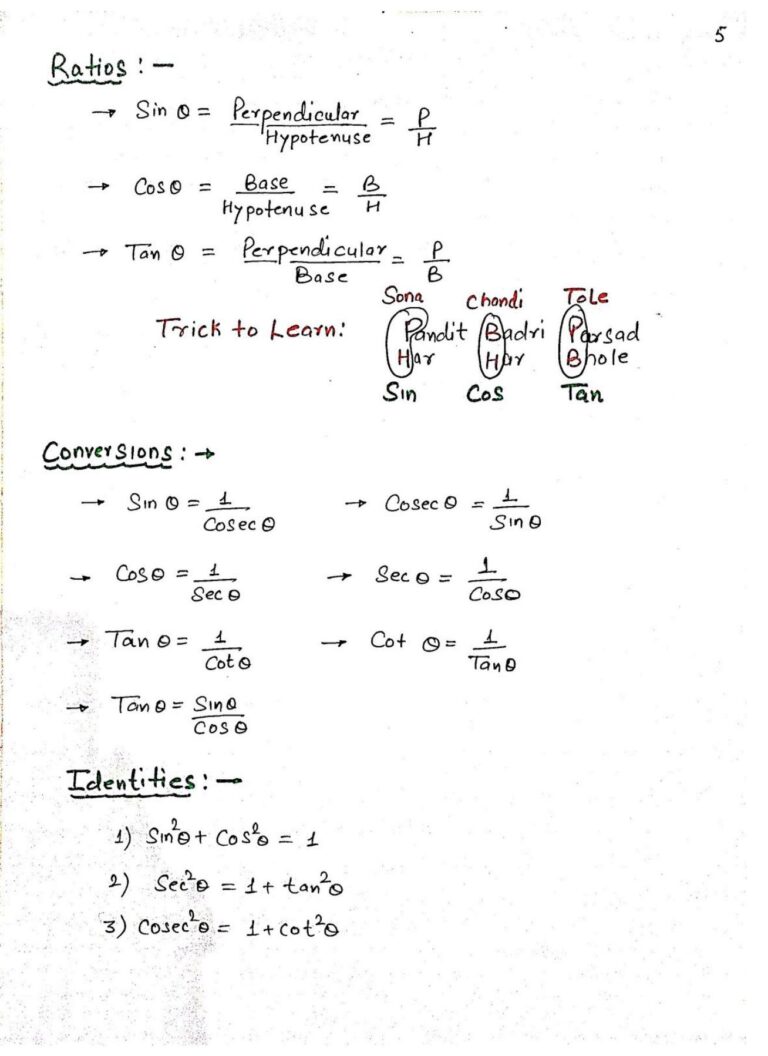 5
Ratios : —
→ Sin θ = Perpendicular/Hypotenuse = P/H
→ Cos θ = Base/Hypotenuse = B/H
→ Tan θ = Perpendicular/Base = P/B
Sona Chandi Tole
Trick to Learn: Pandit Badri Parsad
Har Har Bhole
Sin Cos Tan
Conversions : →
→ Sin θ = 1/Cosec θ → Cosec θ = 1/Sin θ
→ Cos θ = 1/Sec θ → Sec θ = 1/Cos θ
→ Tan θ = 1/Cot θ → Cot θ = 1/Tan θ
→ Tan θ = Sin θ/Cos θ
Identities : —
1) Sin²θ + Cos²θ = 1
2) Sec²θ = 1 + tan²θ
3) Cosec²θ = 1 + cot²θ